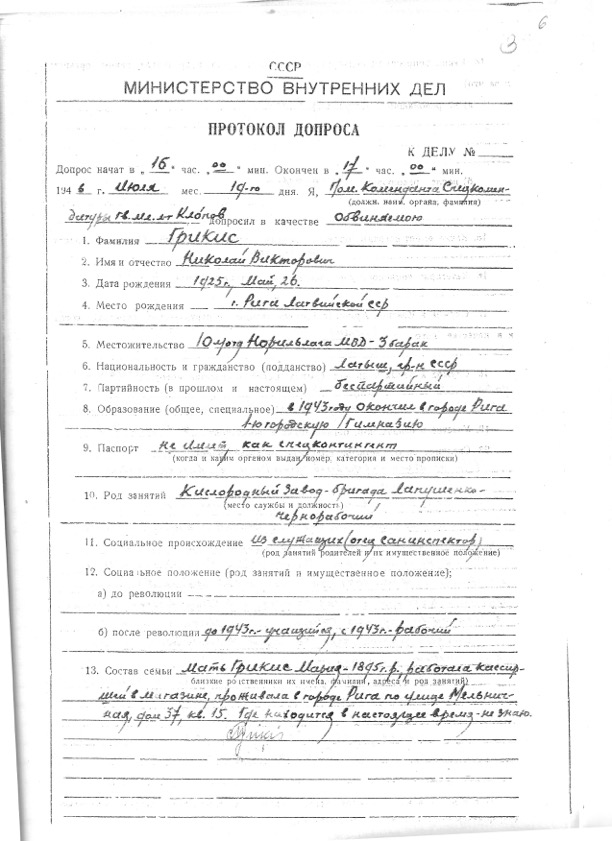 6
3
СССР
МИНИСТЕРСТВО ВНУТРЕННИХ ДЕЛ
ПРОТОКОЛ ДОПРОСА
К ДЕЛУ №
Допрос начат в „ 16 " час. 00 " мин. Окончен в „ 17 " час. „ 00 " мин.
194 6 г. Июля мес. 19-го дня. Я, Пом. Коменданта Спецкомен-
(должн. наим. органа, фамилия)
датуры гв. мл. лт Клопов допросил в качестве Обвиняемого
1. Фамилия Грикис
2. Имя и отчество Николай Викторович
3. Дата рождения 1925г, Май, 26.
4. Место рождения г. Рига Латвийской ССР
5. Местожительство 10 л/отд Норильлага МВД - 3 барак
6. Национальность и гражданство (подданство) Латыш, гр-н СССР
7. Партийность (в прошлом и настоящем) беспартийный
8. Образование (общее, специальное) в 1943 году окончил в городе Рига
Гимназию
9. Паспорт не имеет как спецконтингент
(когда и каким органом выдан, номер, категория и место прописки)
10. Род занятий Кислородный завод - бригада Лапушенко -
(место службы и должность)
чернорабочий
11. Социальное происхождение Из служащих (отец санинспектор)
(род занятий родителей и их имущественное положение)
12. Социальное положение (род занятий и имущественное положение);
а) до революции —
б) после революции до 1943г.- учащийся, с 1943г.- рабочий
13. Состав семьи Мать Грикис Мария - 1895г.р. работала кассир-
близкие родственники их имена, фамилии, адреса и род занятий)
шей в магазине, проживала в городе Рига по улице Мельнич-
ная, дом 37, кв. 15. Где находится в настоящее время - не знаю.